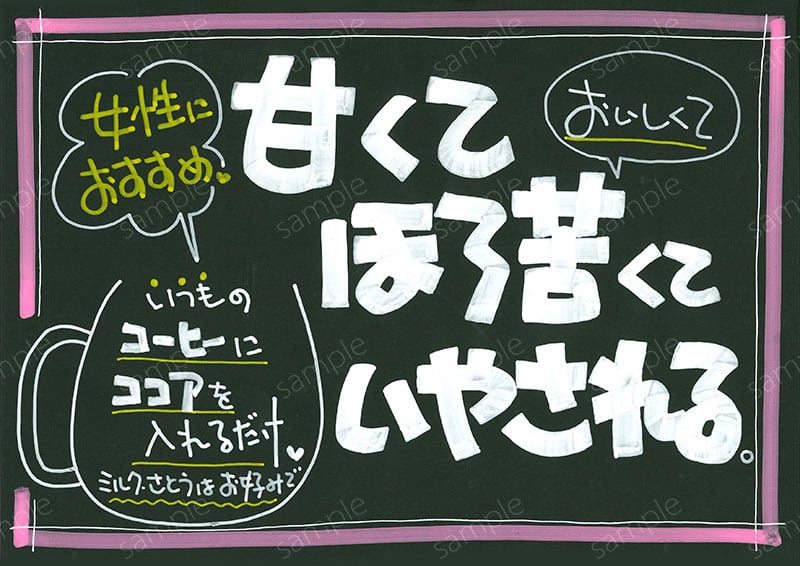 女性に
おすすめ♥
甘くて
おいしくて
ほろ苦くて
いやされる。
いつもの
コーヒーに
ココアを
入れるだけ♥
ミルク・さとうはお好みで
sample